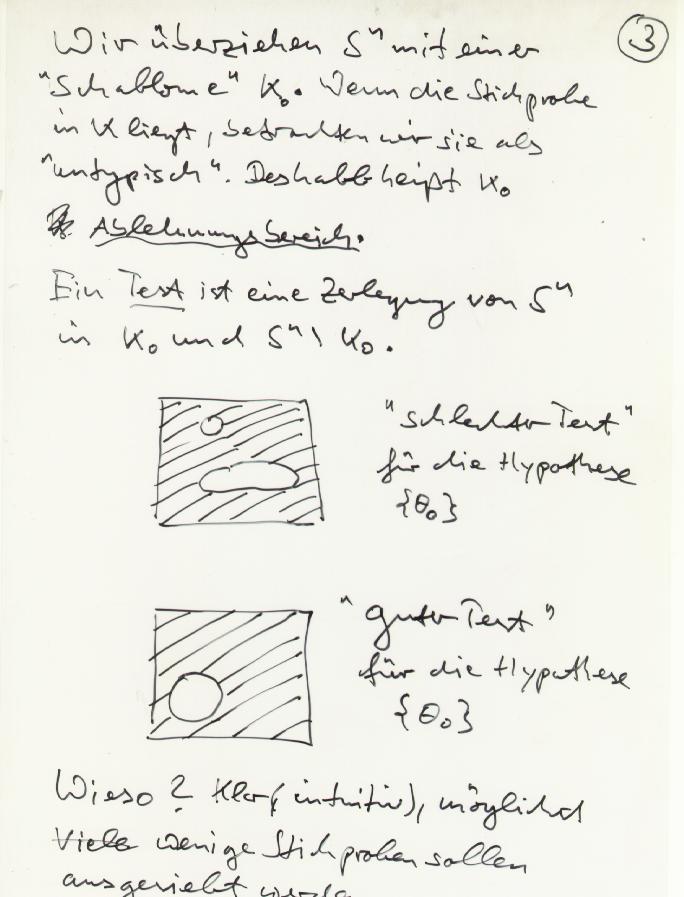 3
Wir überziehen Sⁿ mit einer
"Schablone" K₀. Wenn die Stichprobe
in K liegt, betrachten wir sie als
"untypisch". Deshalb heißt K₀
Ablehnungsbereich.
Ein Test ist eine Zerlegung von Sⁿ
in K₀ und Sⁿ \ K₀.
"schlechter Test"
für die Hypothese
{θ₀}
"guter Test"
für die Hypothese
{θ₀}
Wieso? Klar (intuitiv), möglichst
Viele wenige Stichproben sollen
ausgesiebt werden